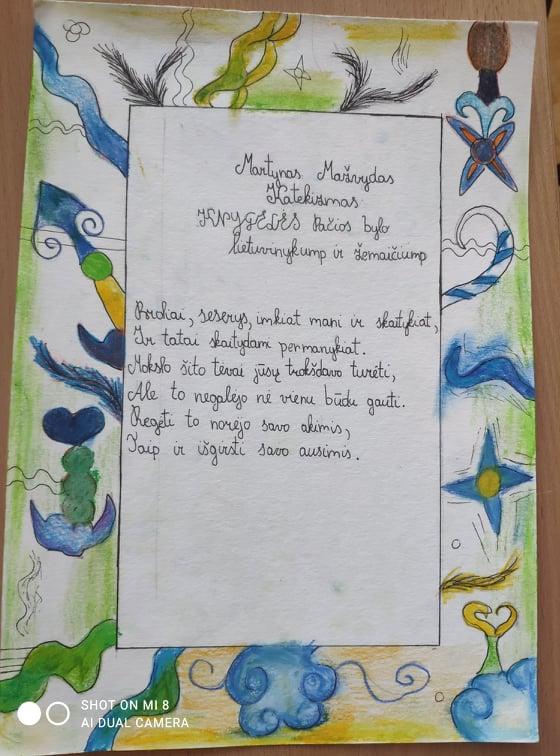 Martynas Mažvydas
Katekizmas
KNYGELĖS Pačios bylo
lietuvinykump ir žemaičiump
Broliai, seserys, imkiat mani ir skaitykiat,
Ir tatai skaitydami permanykiat.
Mokslo šito tėvai jūsų trokšdavo turėti,
Ale to negalėjo nė vienu būdu gauti.
Regėti to norėjo savo akimis,
Taip ir išgirsti savo ausimis.
SHOT ON MI 8
AI DUAL CAMERA